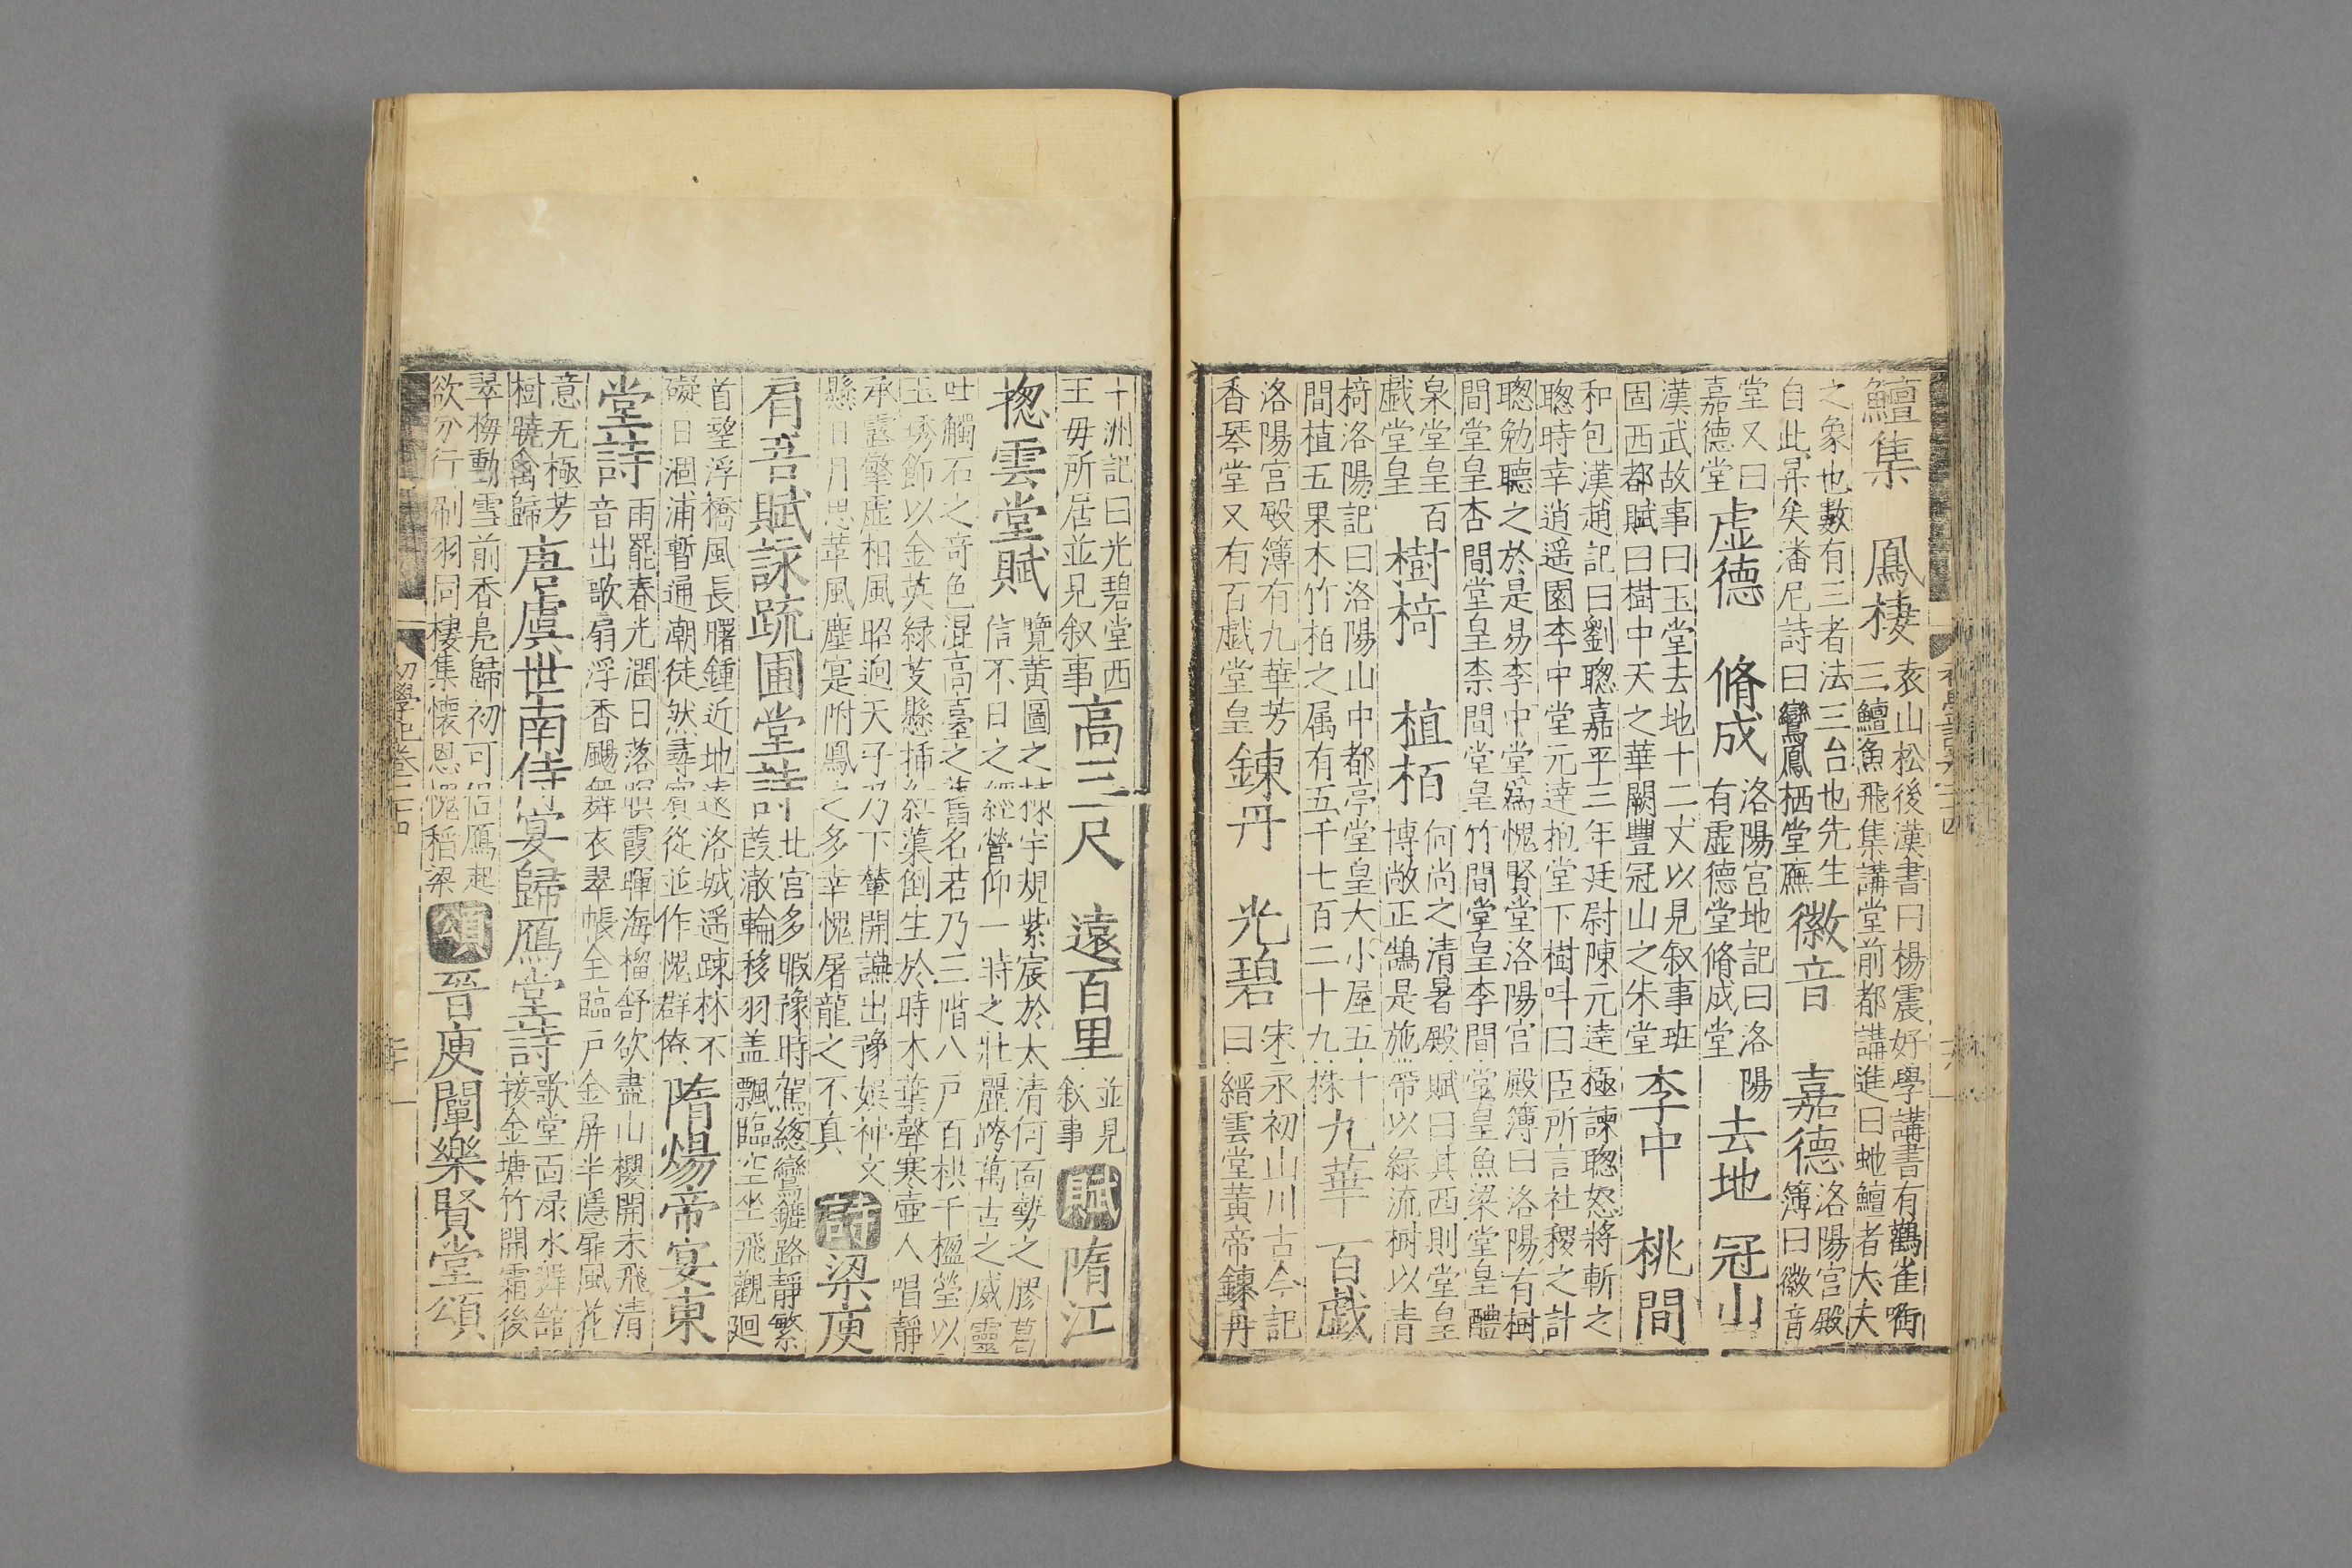 鱣集　鳳棲　袁山松後漢書曰楊震好學講書有鸛雀銜
三鱣魚飛集講堂前都講進曰虵鱣者大夫
之象也數有三者法三台也先生
自此昇矣潘尼詩曰鸞鳳栖堂廡
徽音　嘉德　洛陽宮殿
簿曰徽音
堂又曰
嘉德堂
虛德　脩成　洛陽宮地記曰洛陽
有虛德堂脩成堂
去地　冠山
漢武故事曰玉堂去地十二丈以見叙事班
固西都賦曰樹中天之華闕豐冠山之朱堂
李中　桃間
和包漢趙記曰劉聦嘉平三年廷尉陳元達極諫聦怒將斬之
聦時幸逍遥園李中堂元達抱堂下樹呌曰臣所言社稷之計
聦勉聽之於是易李中堂爲愧賢堂洛陽宮殿簿曰洛陽有桃
間堂皇杏間堂皇柰間堂皇竹間堂皇李間堂皇魚梁堂皇醴
泉堂皇百
戯堂皇
樹椅　植栢　何尚之清暑殿賦曰其西則堂皇
博敞正鵠是施帶以綠流樹以青
椅洛陽記曰洛陽山中都亭堂皇大小屋五十
間植五果木竹柏之属有五千七百二十九株
九華　百戯
洛陽宮殿簿有九華芳
香琴堂又有百戯堂皇
鍊丹　光碧　宋永初山川古今記
曰縉雲堂黃帝鍊丹
十洲記曰光碧堂西
王毋所居並見叙事
高三尺　遠百里　並見
叙事
賦　隋江
揔雲堂賦　覽黃圖之棟宇規紫宸於太清何面勢之膠葛
信不日之經營仰一時之壯麗跨萬古之威靈
吐觸石之竒色混高臺之舊名若乃三階八戶百栱千楹瑩以
玉琇飾以金英緑芰懸揷紅蕖倒生於時木葉聲寒壷人唱靜
承露擎虛相風昭逈天子乃下輦開讌出豫娱神文
懸日月思革風塵寔附鳳之多幸愧屠龍之不真
詩　梁庾
肩吾賦詠疏圃堂詩　北宮多暇豫時駕緫鸞鑣路靜繁
葭澈輪移羽盖飄臨空坐飛觀廻
首望浮橋風長曙鍾近地遠洛城遥踈林不
礙日涸浦暫通潮徒然尋賓從並作愧群僚
隋煬帝宴東
堂詩　雨罷春光潤日落暝霞暉海榴舒欲盡山櫻開未飛清
音出歌扇浮香颺舞衣翠帳全臨戶金屏半隱扉風花
意无極芳
樹曉禽歸
唐虞世南侍宴歸鴈堂詩　歌堂面渌水舞舘
接金塘竹開霜後
翠梅動雪前香鳧歸初可侶鴈起
欲分行刷羽同棲集懷恩愧稻粱
頌　晉庾闡樂賢堂頌
初學記卷二十四